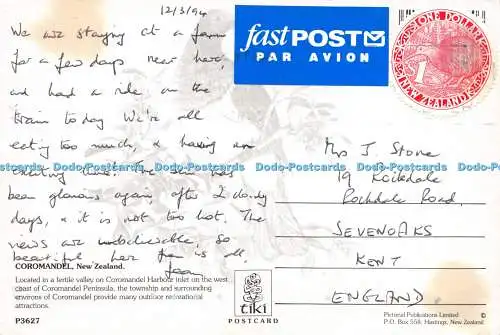 12/3/94
We are staying at a farm
for a few days near here,
and had a ride on the
train today. We're all
eating too much, & having an
exciting time. The sun has
been glorious again after 2 cloudy
days, & it is not too hot. The
views are unbelievable, so
beautiful here
Jean
COROMANDEL, New Zealand.
Located in a fertile valley on Coromandel Harbour inlet on the west
coast of Coromandel Peninsula, the township and surrounding
environs of Coromandel provide many outdoor recreational
attractions.
P3627
fastPOST
PAR AVION
ONE DOLLAR
1
NEW ZEALAND
Mrs J Stone
19
Rockdale Road,
SEVENOAKS
KENT
ENGLAND
tiki
POSTCARD
Pictorial Publications Limited ©
P.O. Box 558, Hastings, New Zealand
Dodo-Postcards Dodo-Postcards Dodo-Postcards Dodo-Postcards Dodo-Postcards